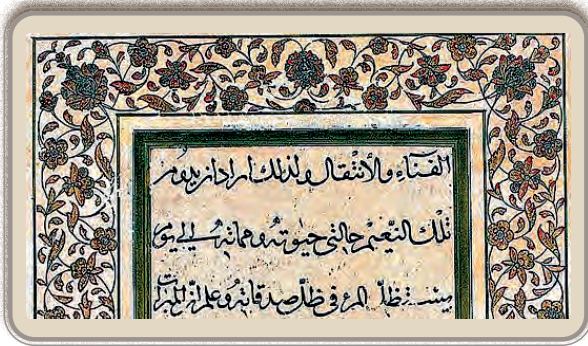 الفناء والانتقال ولذلك اراد ان يدوم
تلك النعيم حالتى حيوته ومماته الى يوم
يستظل المرء فى ظل صدقاته وعلم ان الخيرات